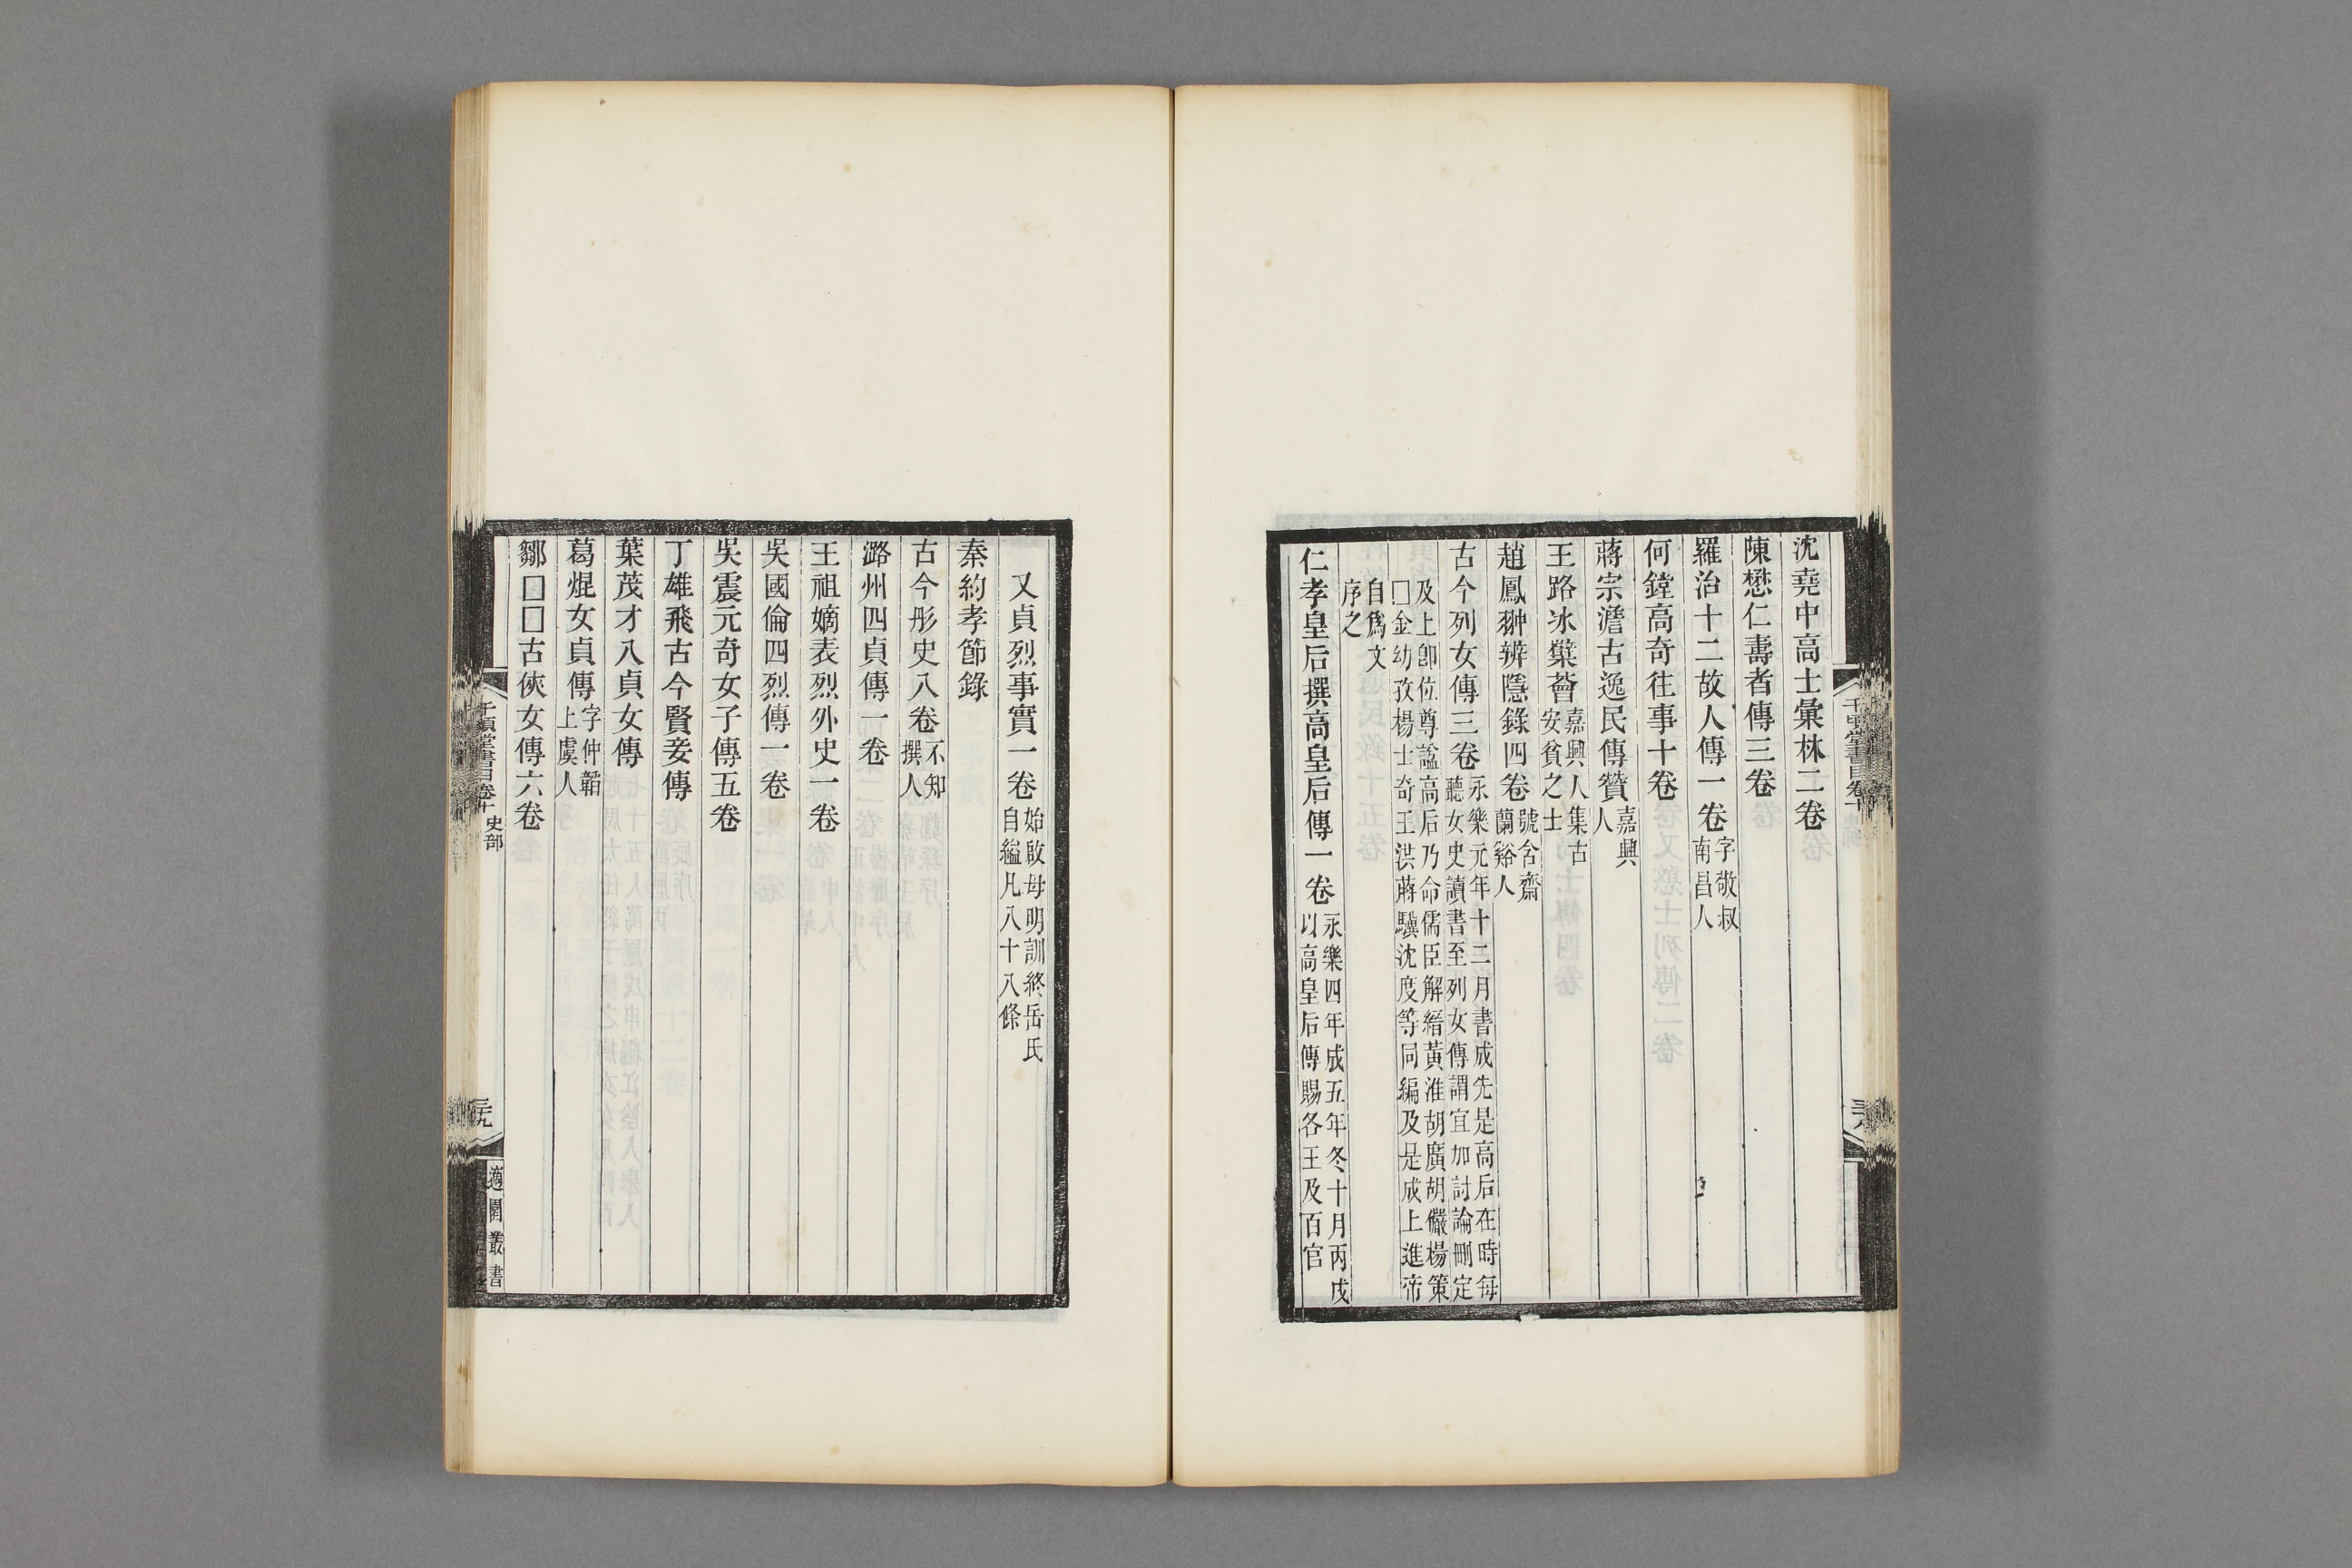 沈堯中高士彙林二卷
陳懋仁壽者傳三卷
羅治十二故人傳一卷字敬叔南昌人
何鏜高奇往事十卷
蔣宗澹古逸民傳贊嘉興人
王路冰櫱薈嘉興人集古安貧之士
趙鳳翀辨隱錄四卷號含齋蘭谿人
古今列女傳三卷永樂元年十二月書成先是高后在時每聽女史讀書至列女傳謂宜加討論刪定
及上卽位尊諡高后乃命儒臣解縉黃淮胡廣胡儼楊榮□金幼孜楊士奇王洪蔣驥沈度等同編及是成上進帝
自爲文序之
仁孝皇后撰高皇后傳一卷永樂四年成五年冬十月丙戌以高皇后傳賜各王及百官
千頃堂書目卷十
又貞烈事實一卷始啟母明訓終岳氏自縊凡八十八條
秦約孝節錄
古今彤史八卷不知撰人
潞州四貞傳一卷
王祖嫡表烈外史一卷
吳國倫四烈傳一卷
吳震元奇女子傳五卷
丁雄飛古今賢妾傳
葉茂才八貞女傳
葛焜女貞傳字仲韜上虞人
鄒□□古俠女傳六卷
千頃堂書目卷十 史部
三十九
適園叢書